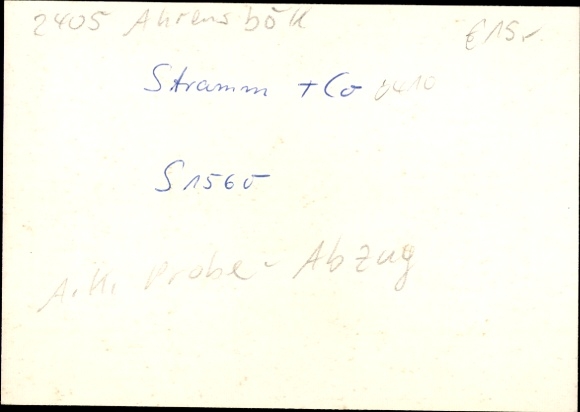 2405 Ahrensbök €15,-
Stramm + Co 0410
S 1565
A.K. Probe - Abzug